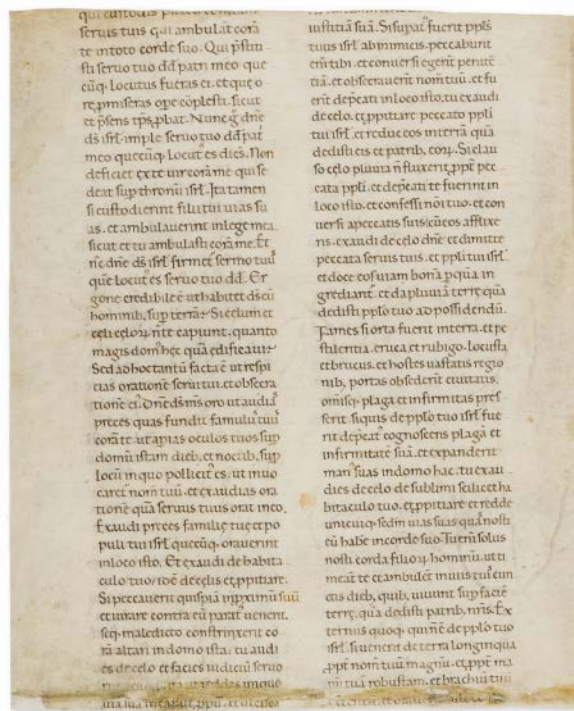 seruis tuis qui ambulāt corā
te intoto corde suo. Qui p̄stiti
sti seruo tuo dd̄ patri meo que
cūq; locutus fueras ei. et que o
re pmiseras ope cōplesti. sicut
et p̄sens tp̄s pbat. Nunc g̊ dn̄e
ds̄ isrl. imple seruo tuo dd̄ pat
meo quecūq; locut᾽ es dicēs. Non
deficiet ex te uir corā me qui se
deat sup thronū isrl. Ita tamen
si custodierint filii tui uias su
as. et ambulauerint inlege mea.
sicut et tu ambulasti corā me. Et
nc̄ dn̄e ds̄ isrl firmet᾽ sermo tuus
quē locut᾽ es seruo tuo dd̄. Er
gone credibile ē ut habitet ds̄ cū
hominib; sup terrā? Si celum et
celi celoꝝ n̄ te capiunt. quanto
magis dom᾽ hec quā edificaui?
Sed ad hoc tantū facta ē ut respi
cias orationē serui tui. et obsecra
tionē ei᾽. Dn̄e ds̄ ms̄ oro ut audias
preces quas fundit famulus tuus
corā te. ut apias oculos tuos sup
domū istam dieb; et noctib; sup
locū in quo pollicit᾽ es. ut inuo
caret᾽ nom̄ tuū. et exaudias ora
tionē quā seruus tuus orat in eo.
Exaudi preces famuli tui et po
puli tui isrl. quecūq; orauerint
inloco isto. Et exaudi de habita
culo tuo idē de celis et ppitiare.
Si peccauerit quispiā inpximū suū
et iurare contra eū parat᾽ uenerit.
seq; maledicto constrinxerit co
rā altari indomo ista. tu audi
es de celo et facies iudiciū seruo
iustitiā suā. Si supat᾽ fuerit ppl̄s
tuus isrl abinimicis. peccabunt
enī tibi. et conuersi egerint penitē
tiā. et obsecrauerint nom̄ tuū. et fu
erint dep̄cati inloco isto. tu exaudi
de celo. et ppitiare peccato ppl̄i
tui isrl. et reduc eos interrā quā
dedisti eis et patrib; eoꝝ. Si clau
so celo pluuia n̄ fluxerit ppt᾽ pec
cata ppl̄i. et dep̄cati te fuerint in
loco isto. et confessi nōi tuo. et con
uersi apeccatis suis cū eos afflixe
ris. exaudi de celo dn̄e et dimitte
peccata seruis tuis. et ppl̄i tui isrl.
et doce eos uiam bonā p quā in
grediant᾽. et da pluuiā terre quā
dedisti pplo tuo ad possidendū.
Fames si orta fuerit interra. et pe
stilentia. eruca. et rubigo. locusta
et brucus. et hostes uastatis regio
nib; portas obsederint ciuitatis.
omīsq; plaga et infirmitas pres
serit. siquis de pplo tuo isrl fue
rit dep̄cat᾽ cognoscens plagā et
infirmitatē suā. et expanderit
man᾽ suas indomo hac. tu exau
dies de celo de sublimi scilicet ha
bitaculo tuo. et ppitiare. et redde
unicuiq; scdm uias suas quas nosti
eū habe incorde suo. Tu eni solus
nosti corda filioꝝ hominū. ut ti
meāt te et ambulēt inuiis tuis cun
ctis dieb; quib; uiuunt sup faciē
terre. quā dedisti patrib; nr̄is. Ex
ternus quoq; qui n̄ ē de pplo tuo
isrl. si uenerit de terra longinqua
ppt᾽ nom̄ tuū magnū. et ppt᾽ ma
nū tuā robustam. et brachiū tuū